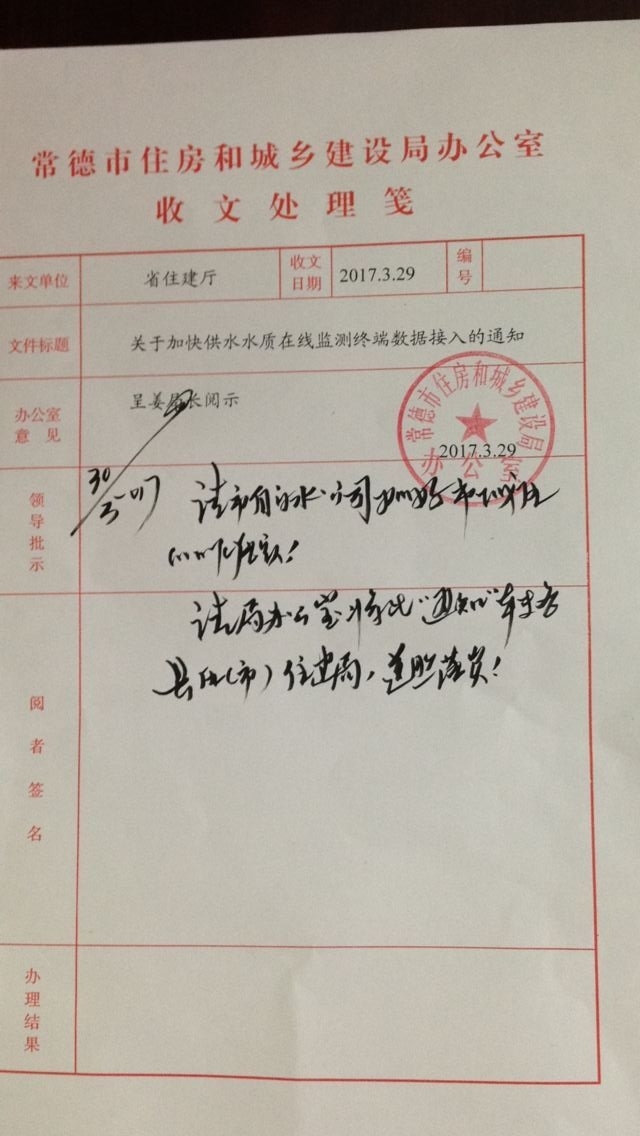 常德市住房和城乡建设局办公室
收文处理笺
来文单位 省住建厅 收文日期 2017.3.29 编号
文件标题 关于加快供水水质在线监测终端数据接入的通知
办公室意见 呈姜局长阅示
常德市住房和城乡建设局
办公室
2017.3.29
领导批示
30/3 017
请市自来水公司
请局办公室将此“通知”转各
县区(市)住建局,遵照落实!
阅者签名
办理结果